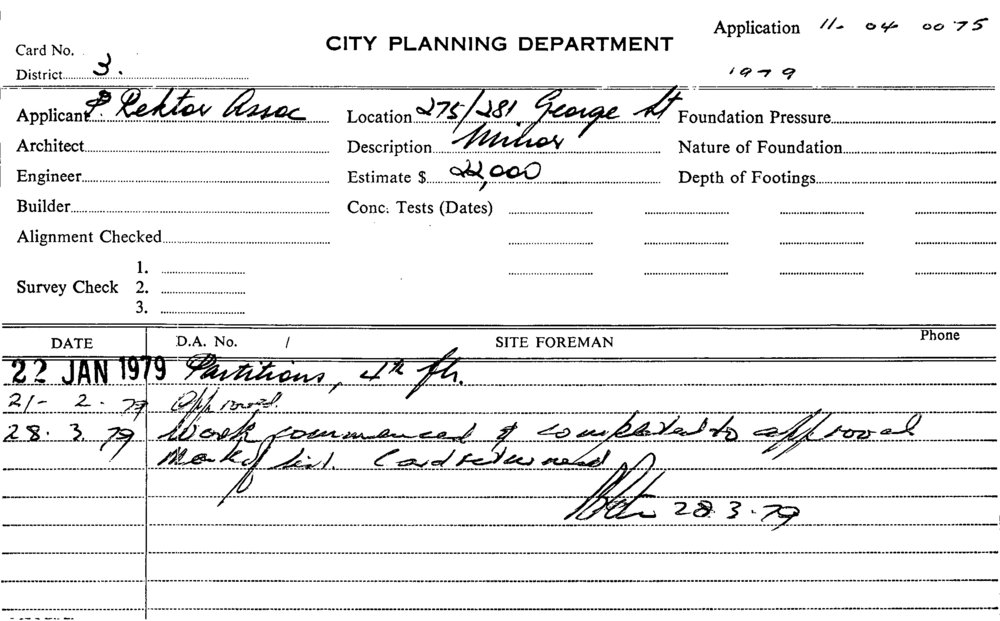 Application 11- 04 0075
CITY PLANNING DEPARTMENT
Card No.
District 3. 1979
Applicant P. Rektor Assoc Location 275/281 George St Foundation Pressure
Architect Description Minor Nature of Foundation
Engineer Estimate $ 22,000 Depth of Footings
Builder Conc. Tests (Dates)
Alignment Checked
1.
Survey Check 2.
3.
DATE D.A. No. / SITE FOREMAN Phone
22 JAN 1979 Partitions, 4th flr.
21- 2. 79 Approved.
28. 3. 79 Work commenced & completed to approval
Mark of list. Card returned
28.3.79